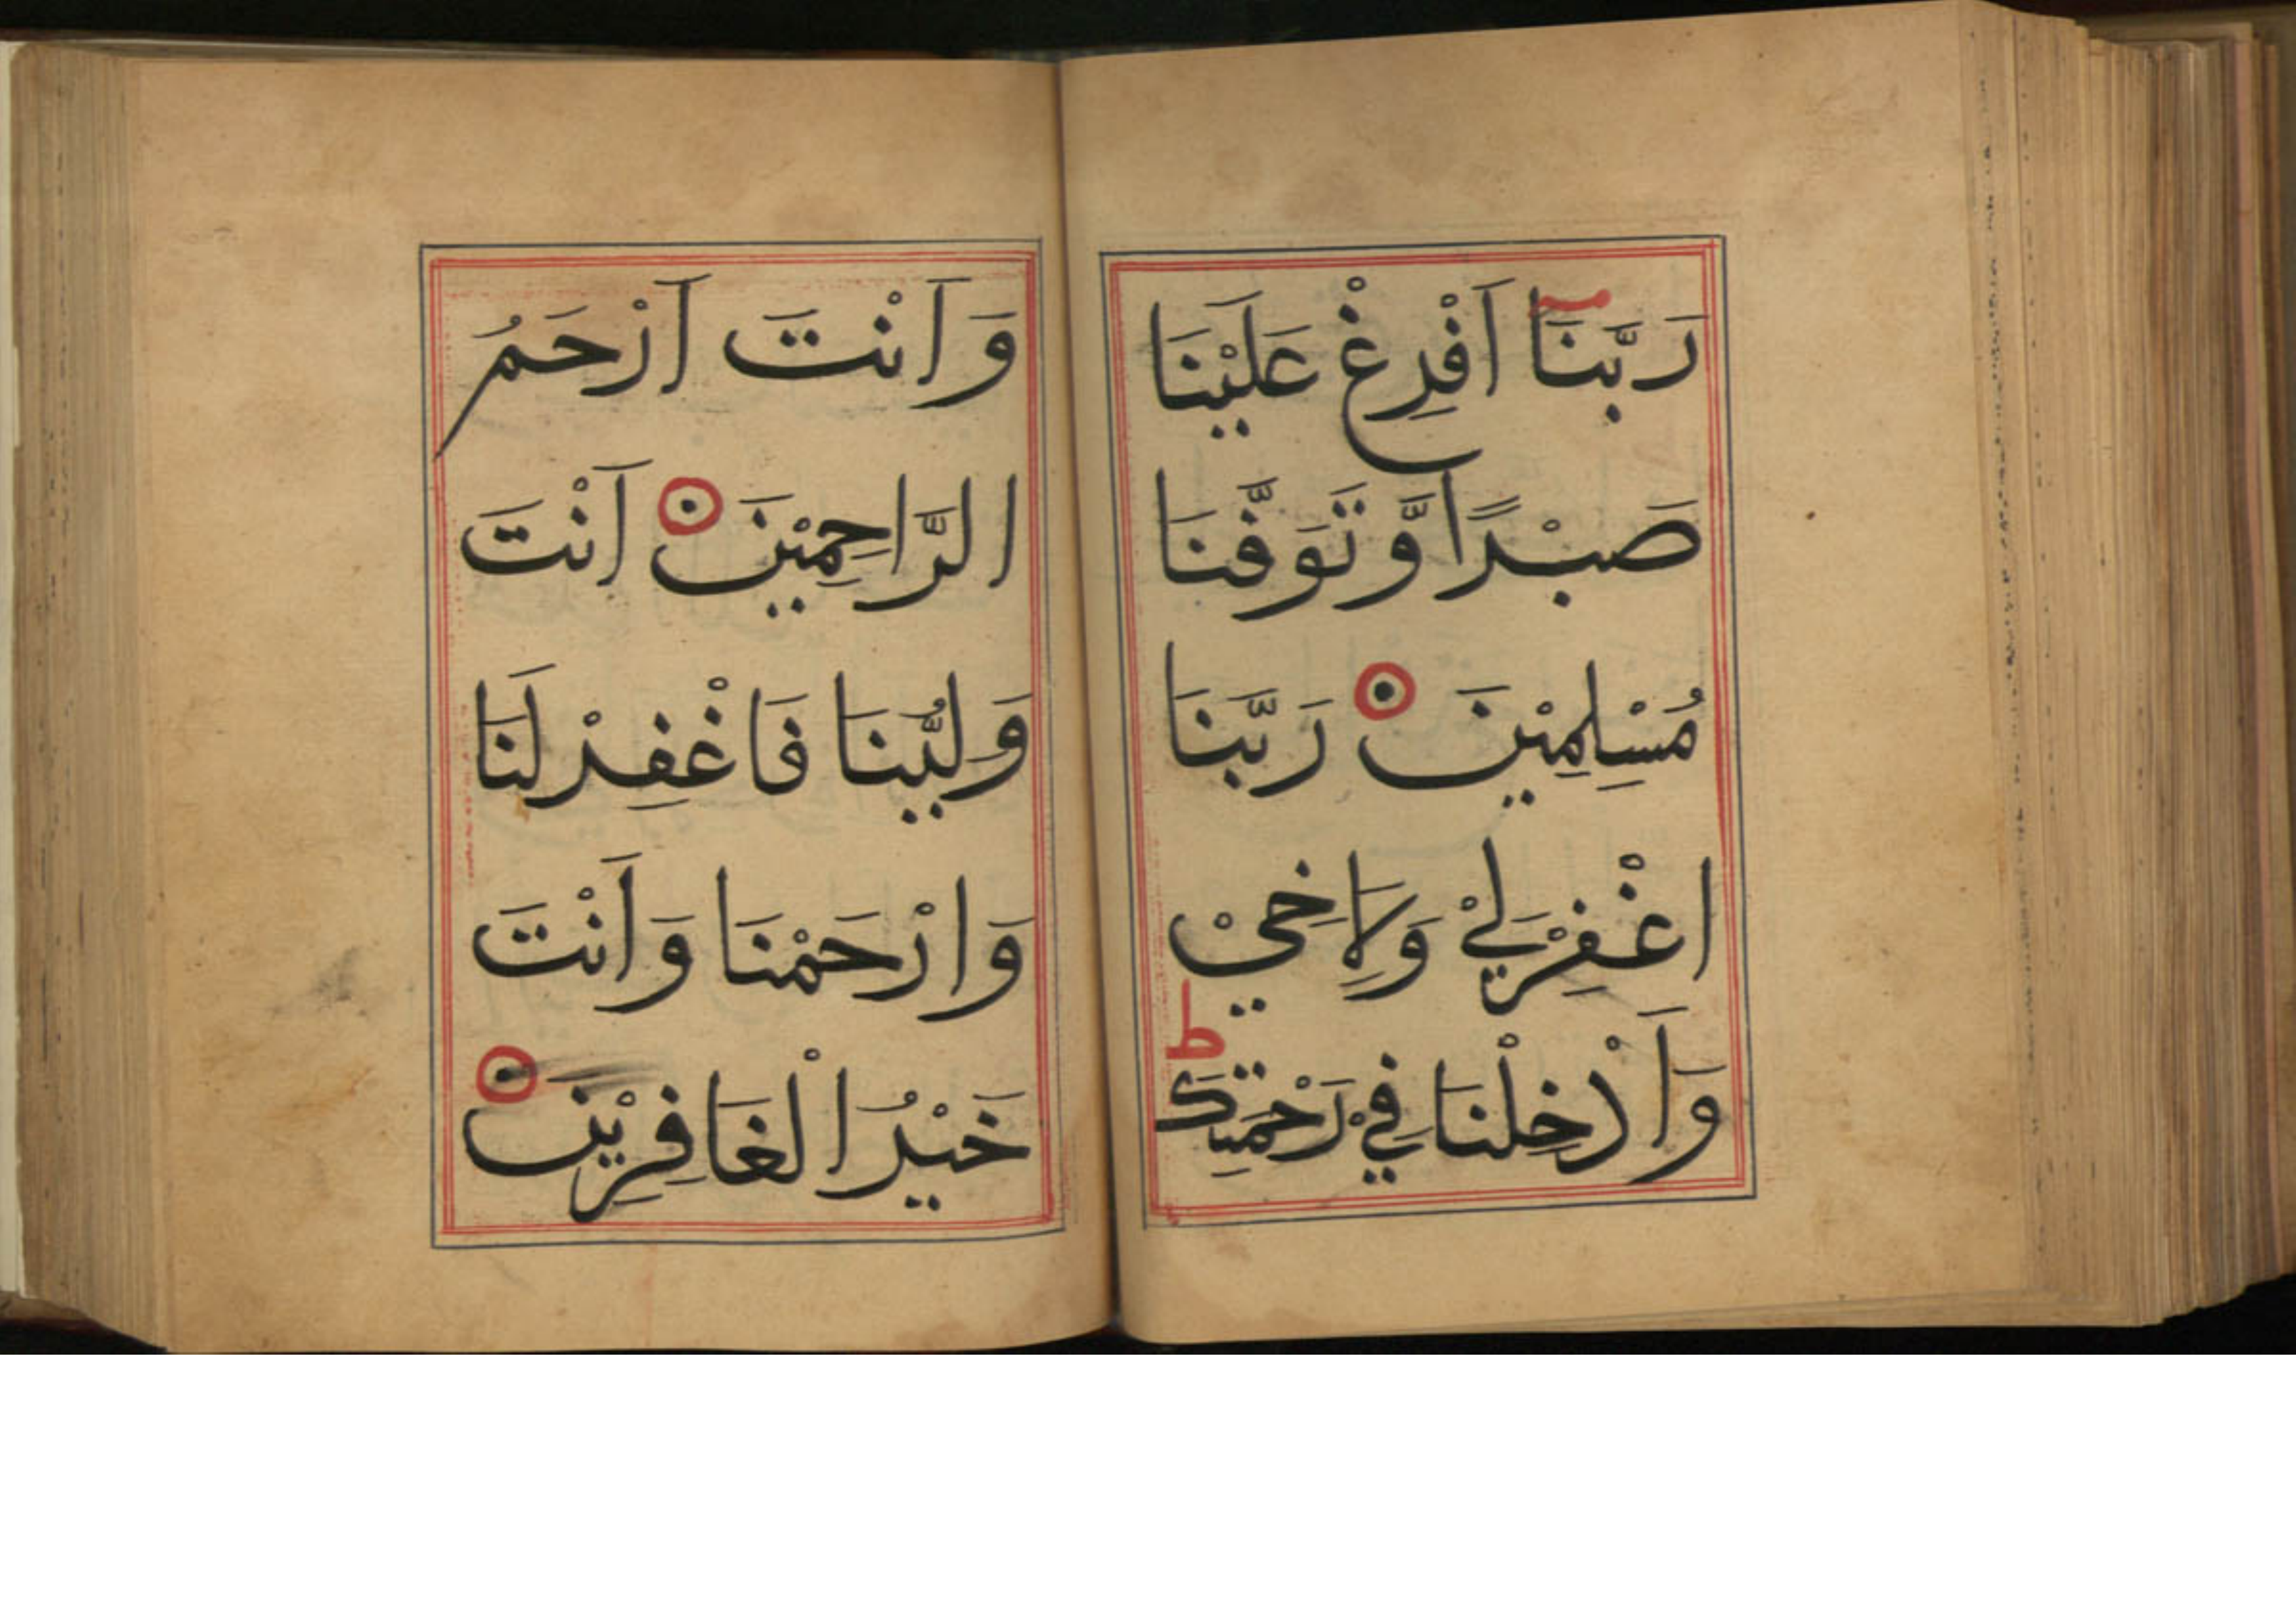 رَبَّنَا اَفْرِغْ عَلَيْنَا
صَبْرًا وَّ تَوَفَّنَا
مُسْلِمِيْنَ رَبَّنَا
اغْفِرْلِيْ وَلِاَخِيْ
وَاَدْخِلْنَا فِيْ رَحْمَتِكَ ط
وَ اَنْتَ اَرْحَمُ
الرَّاحِمِيْنَ اَنْتَ
وَلِيُّنَا فَاغْفِرْلَنَا
وَارْحَمْنَا وَاَنْتَ
خَيْرُ الْغَافِرِيْنَ